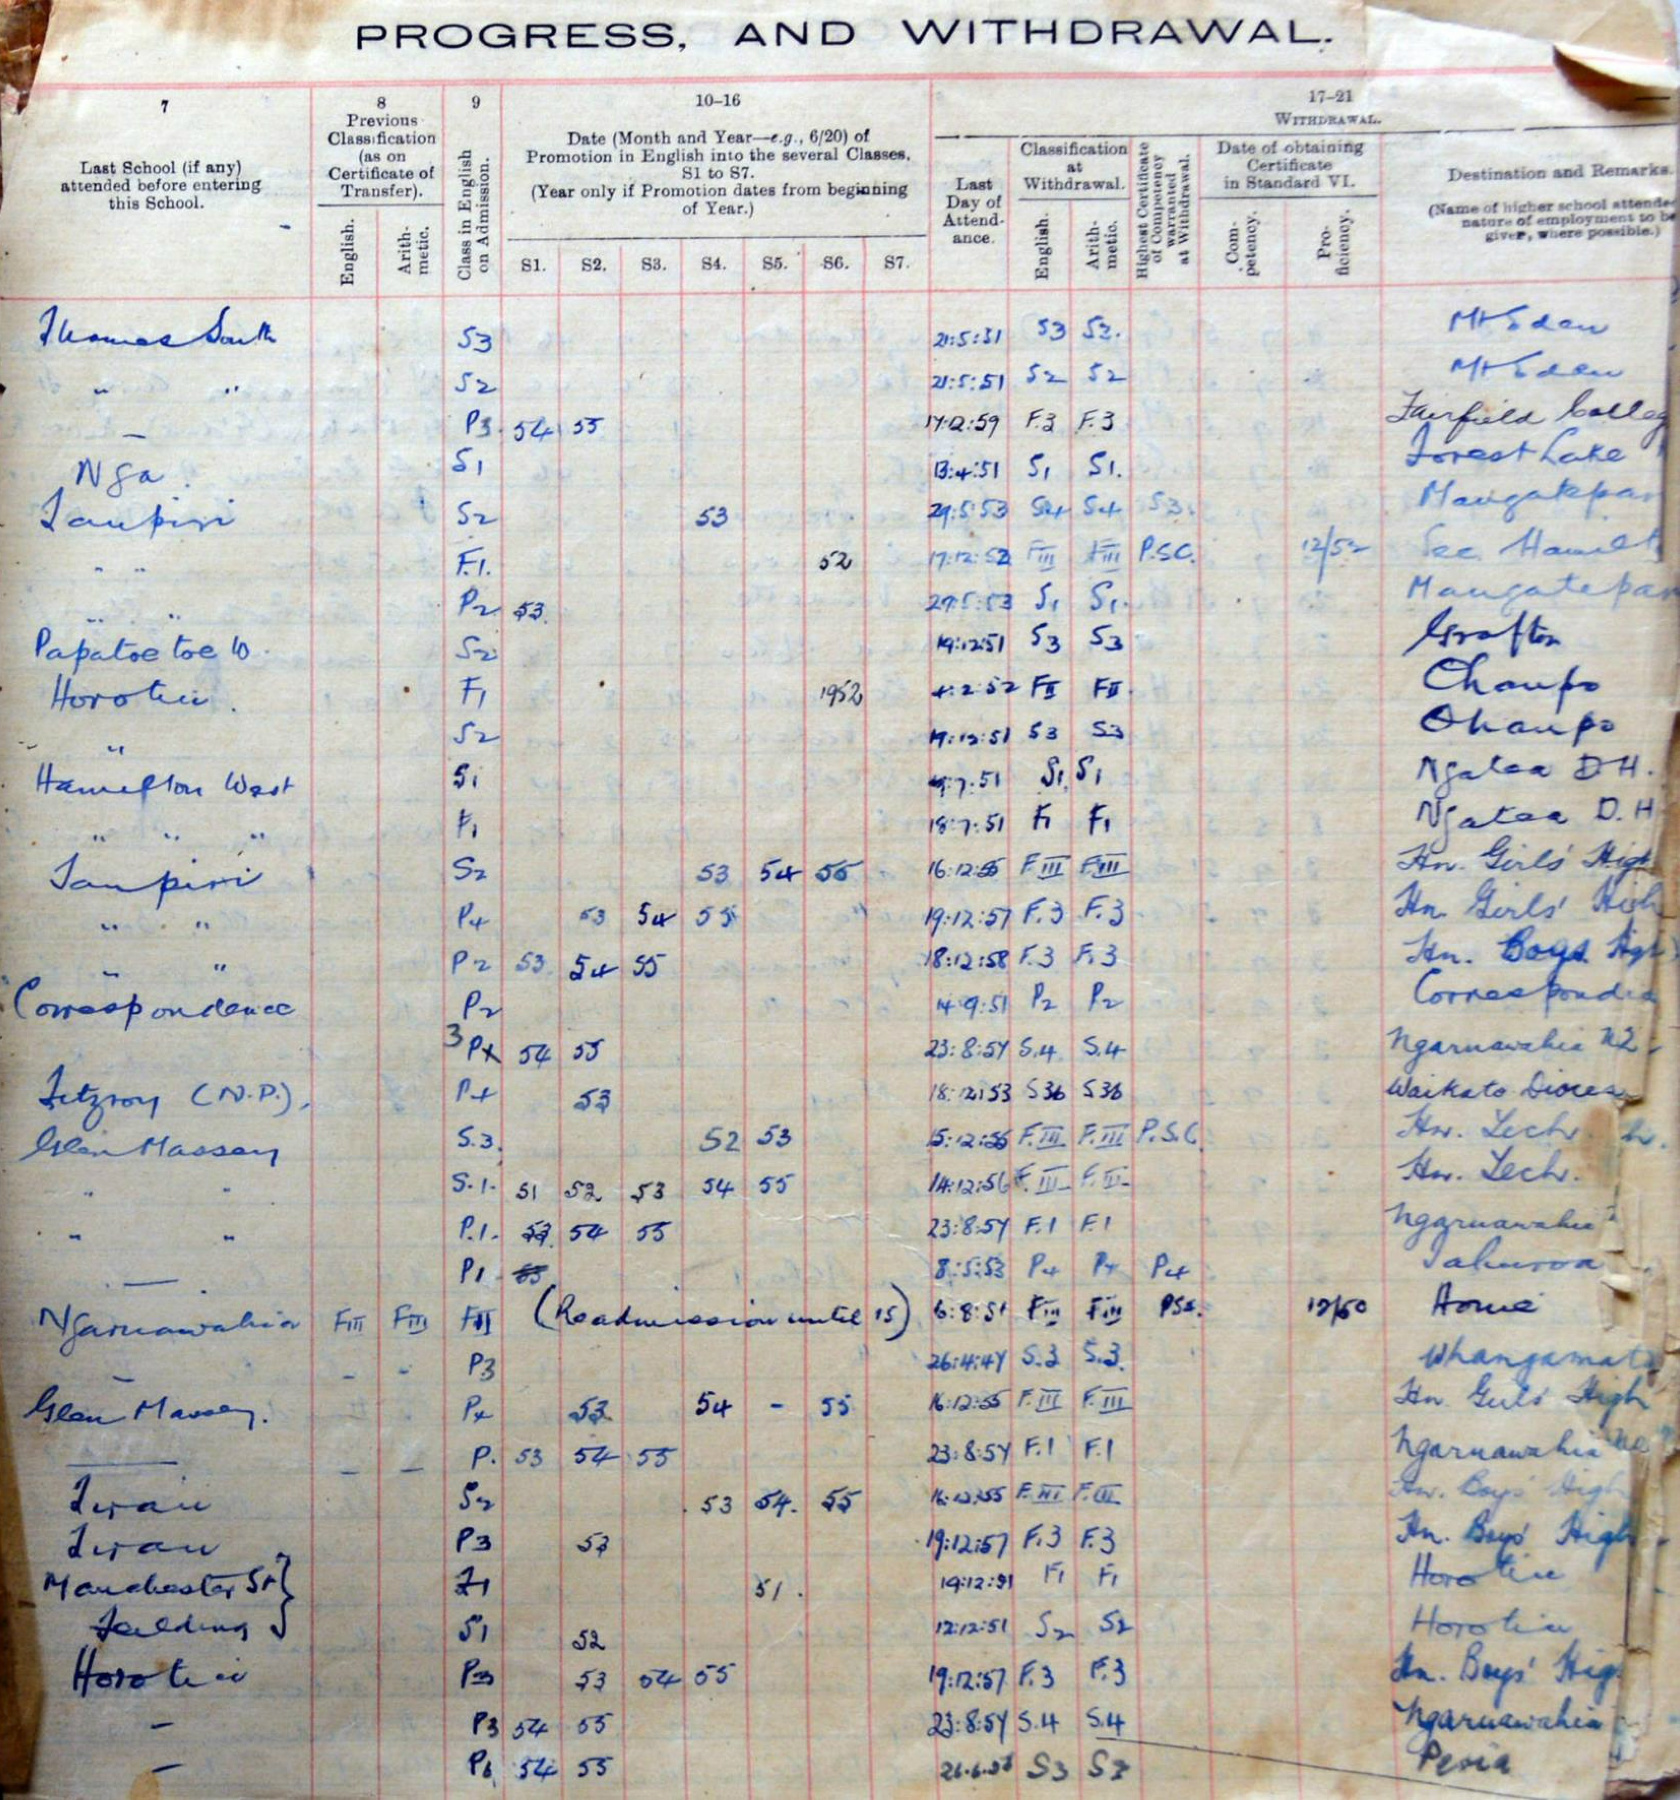 PROGRESS, AND WITHDRAWAL.
7
Last School (if any)
attended before entering
this School.
8
Previous
Classification
(as on
Certificate of
Transfer).
English.
Arith-
metic.
9
Class in English
on Admission.
10–16
Date (Month and Year—e.g., 6/20) of
Promotion in English into the several Classes,
S1 to S7.
(Year only if Promotion dates from beginning
of Year.)
S1. S2. S3. S4. S5. S6. S7.
17–21
WITHDRAWAL.
Last
Day of
Attend-
ance.
Classification
at
Withdrawal.
English.
Arith-
metic.
Highest Certificate
of Competency
warranted
at Withdrawal.
Date of obtaining
Certificate
in Standard VI.
Com-
petency.
Pro-
ficiency.
Destination and Remarks.
(Name of higher school attende
nature of employment to be
given, where possible.)
Thames South S3 21:5:51 S3 S3. Mt Eden
" " S2 21:5:51 S2 S2 Mt Eden
— P3 54 55 17:12:59 F.3 F.3 Fairfield Colleg
Nga. S1 13:4:51 S1 S1. Forest Lake
Taupiri S2 53 29:5:53 S4 S4 S3. Maugatepar
" " F.1. 52 17:12:52 FIII FIII P.S.C. 12/52 Tec Hamilt
" " P2 53. 29:5:53 S1 S1. Maugatepar
Papatoetoe W. S2 19:12:51 S3 S3 Grafton
Horotiu. F1 1952 4:2:52 FII FII. Ohaupo
" S2 19:12:51 S3 S3 Ohaupo
Hamilton West S1 7.51 S1, S1 Ngatea D H.
" " " F1 18:7:51 F1 F1 Ngatea D. H
Taupiri S2 53 54 55 16:12:55 F.III F.III Hn. Girls' High
" " P4 53 54 55 19:12:57 F.3 F.3 Hn. Girls' High
" " P2 53 54 55 18:12:58 F.3 F.3 Hn. Boys High
Correspondence P2 14:9:51 P2 P2 Corresponden
3 P4 54 55 23:8:57 S.4 S.4 Ngaruawahia
Fitzroy (N.P.). P4 53 18:12:53 S3b S3b Waikato Dioces
Glen Massey S.3. 52 53 15:12:55 F.III F.III P.S.C. Hn. Tech.
" " S.1. 51 52 53 54 55 14:12:56 F.III F.III Hn. Tech.
" " P.1. 53 54 55 23:8:57 F.1 F.1 Ngaruawahia
— P1 53 8:5:53 P4 P4 P4 Tahuroa
Ngaruawahia FIII FIII FIII (Readmission until 15) 6:8:51 FIII FIII PSC. 12/50 Home
— - - P3 26:4:47 S.3 S.3. Whangamata
Glen Massey. P4 53 54 - 55 16:12:55 F.III F.III Hn Girls' High
— — — P. 53 54 55 23:8:57 F.1 F.1 Ngaruawahia
Tirau S2 53 54. 55 16:12:55 F.III F.III Hn. Boys' High
Tirau P3 53 19:12:57 F.3 F.3 Hn. Boys' High
Manchester St F1 51. 19:12:51 F1 F1 Horotiu
Feilding S1 52 12:12:51 S2 S2 Horotiu
Horotiu P3 53 54 55 19:12:57 F.3 F.3 Hn. Boys' Hig
— P3 54 55 23:8:57 S.4 S.4 Ngaruawahia
— P6 54 55 S3 S3 Peria